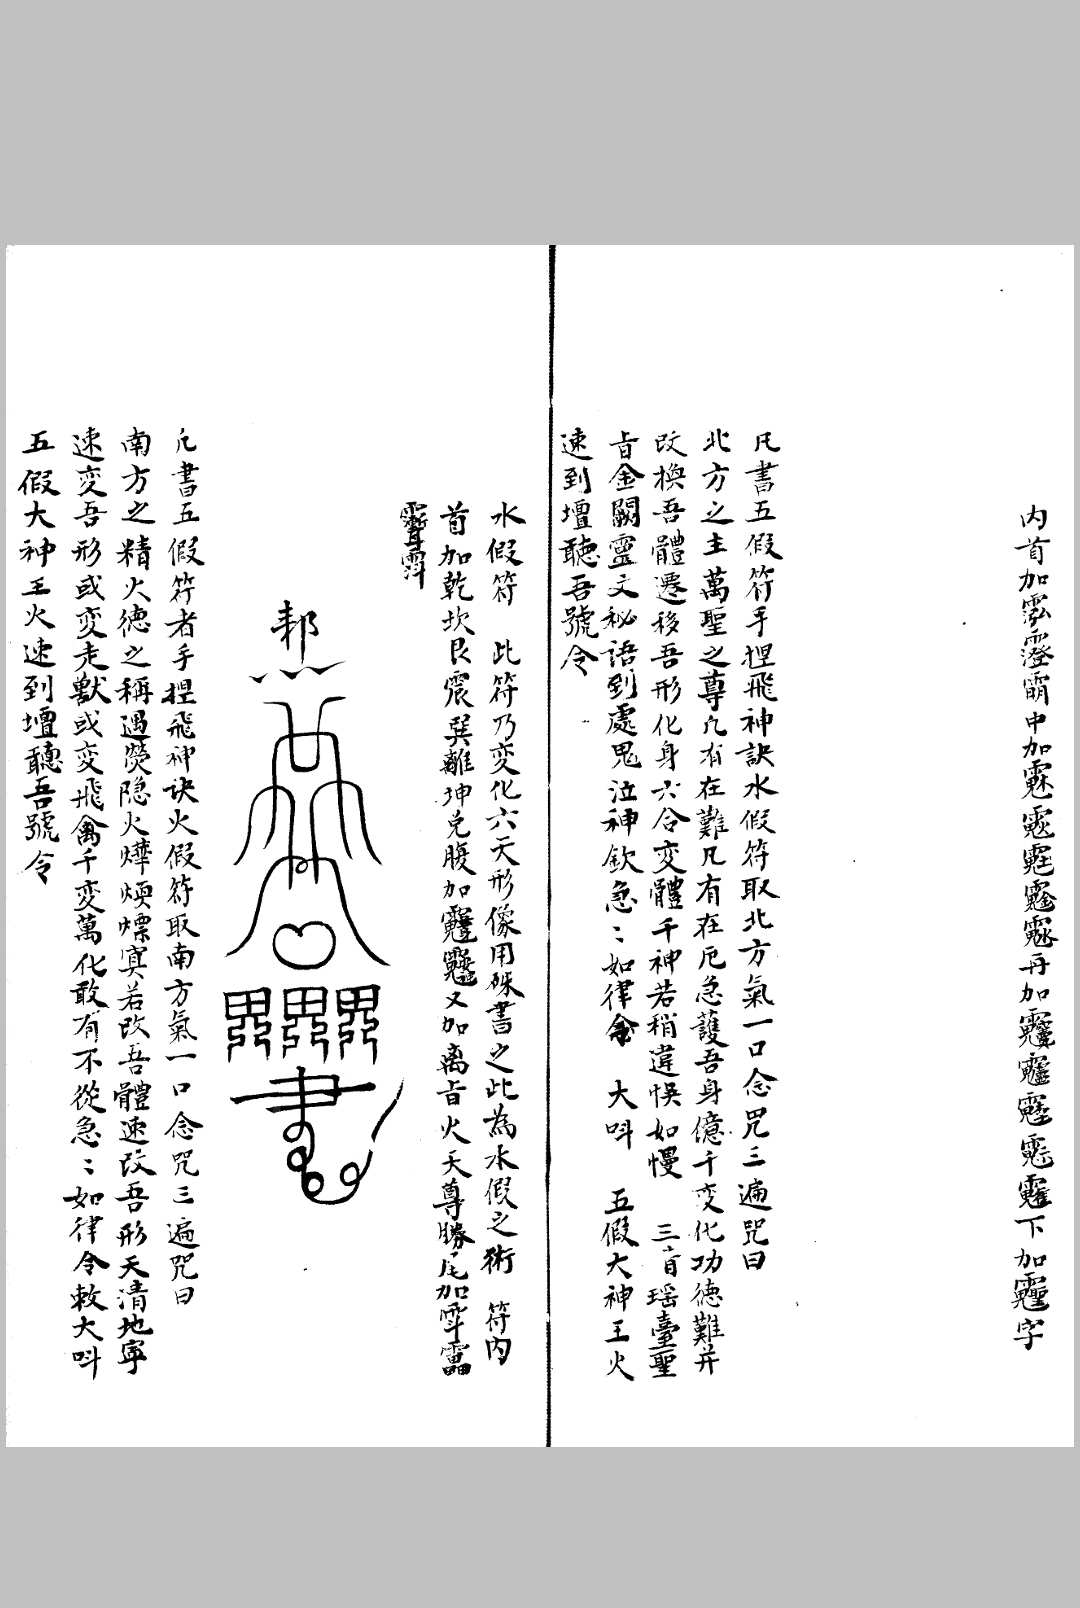 内首加霐霪霸中加 再加 下加 字
凡書五假符手揑飛神訣水假符取北方氣一口念咒三遍咒曰
北方之主萬聖之尊凡有在難凡有在厄急護吾身億千变化功德難并
改換吾體遷移吾形化身六合变體千神若稍違悞如慢 三首瑶臺聖
旨金闕靈文秘語到處鬼泣神欽急〻如律令 大呌 五假大神王火
速到壇聽吾號令
水假符 此符乃变化六天形像用硃書之此為水假之術 符内
首加乾坎艮震巽離坤兌腹加 又加离旨火天尊勝尾加 
凢書五假符者手揑飛神诀火假符取南方氣一口念咒三遍咒曰
南方之精火德之稱遇熒隐火燁煐熛寞若改吾體速改吾形天清地寧
速变吾形或变走獸或变飛禽千变萬化敢有不從急〻如律令敕大呌
五假大神王火速到壇聽吾號令